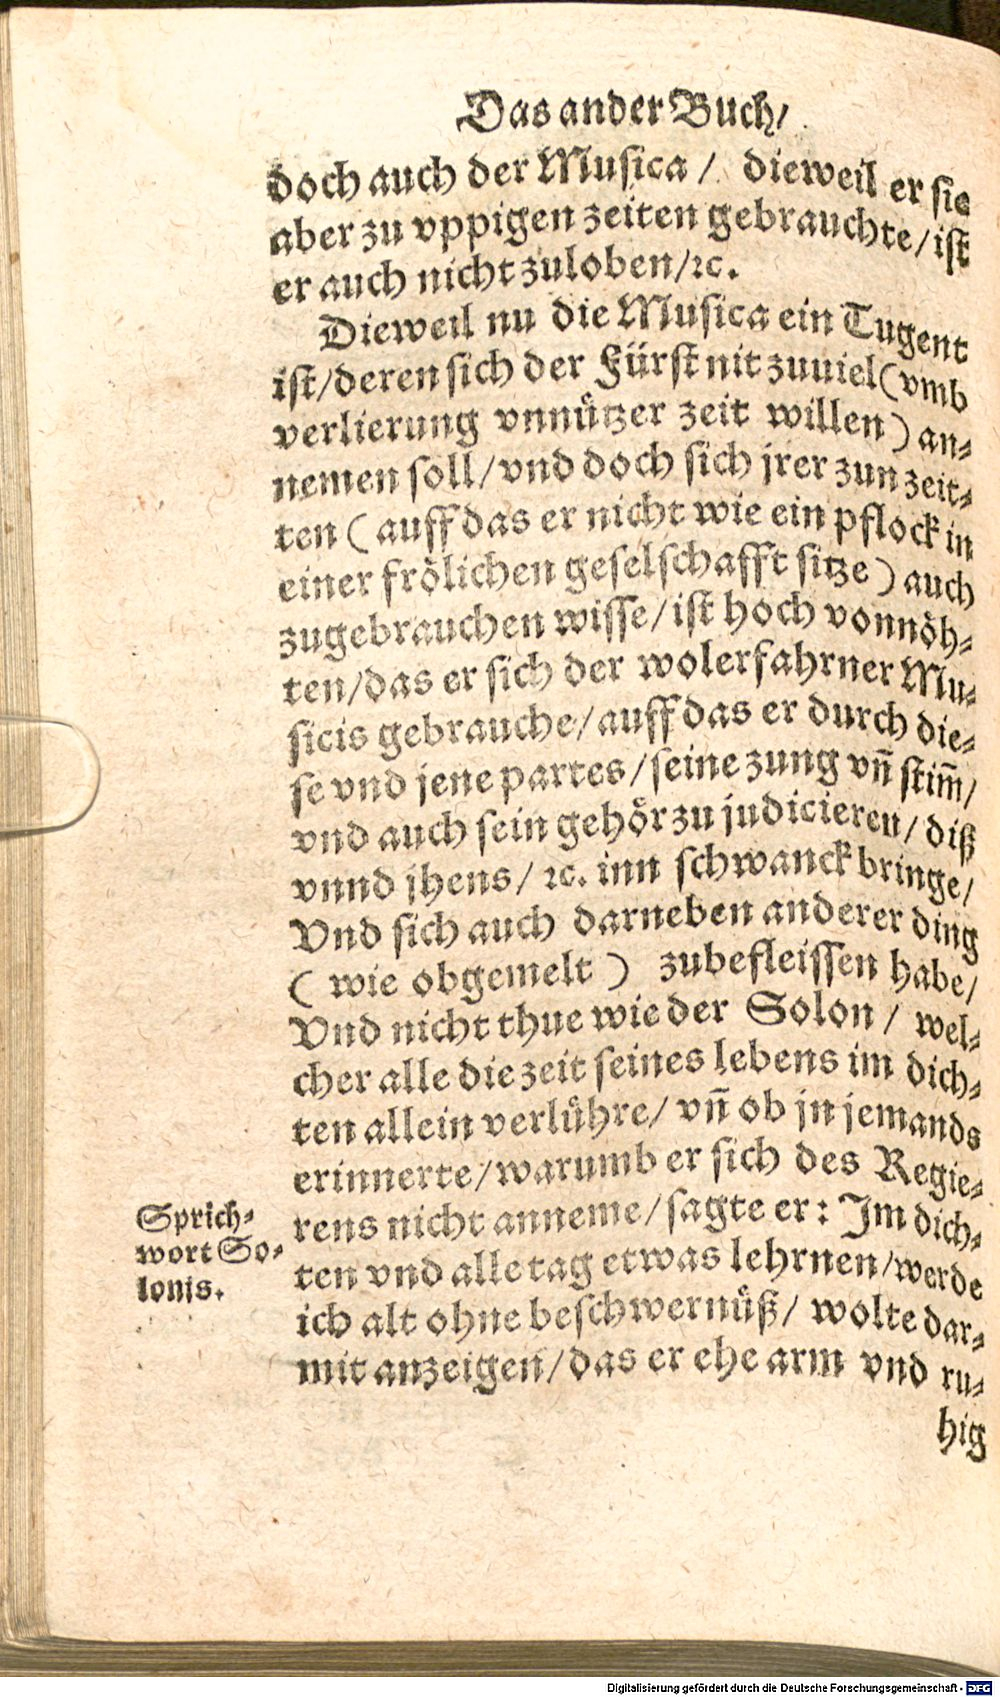 Das ander Buch/
doch auch der Musica / dieweil er sie
aber zu vppigen zeiten gebrauchte/ist
er auch nicht zuloben/ꝛc.
Dieweil nu die Musica ein Tugent
ist/deren sich der Fürst nit zuuiel(vmb
verlierung vnnützer zeit willen) an⸗
nemen soll/vnd doch sich jrer zun zeit⸗
ten ( auff das er nicht wie ein pflock in
einer frölichen geselschafft sitze) auch
zugebrauchen wisse/ist hoch vonnöh⸗
ten/das er sich der wolerfahrner Mu⸗
sicis gebrauche/auff das er durch die⸗
se vnd jene partes/seine zung vñ stim̃/
vnd auch sein gehör zu judicieren/ diß
vnnd jhens/ ꝛc. inn schwanck bringe/
Vnd sich auch darneben anderer ding
( wie obgemelt ) zubefleissen habe/
Vnd nicht thue wie der Solon / wel⸗
cher alle die zeit seines lebens im dich⸗
ten allein verlühre/ vñ ob jn jemands
erinnerte/warumb er sich des Regie⸗
rens nicht anneme/sagte er: Im dich⸗
ten vnd alle tag etwas lehrnen/werde
ich alt ohne beschwernüß/ wolte dar⸗
mit anzeigen/das er ehe arm vnd ru⸗
hig
Sprich⸗
wort So⸗
lonis.
Digitalisierung gefördert durch die Deutsche Forschungsgemeinschaft - DFG